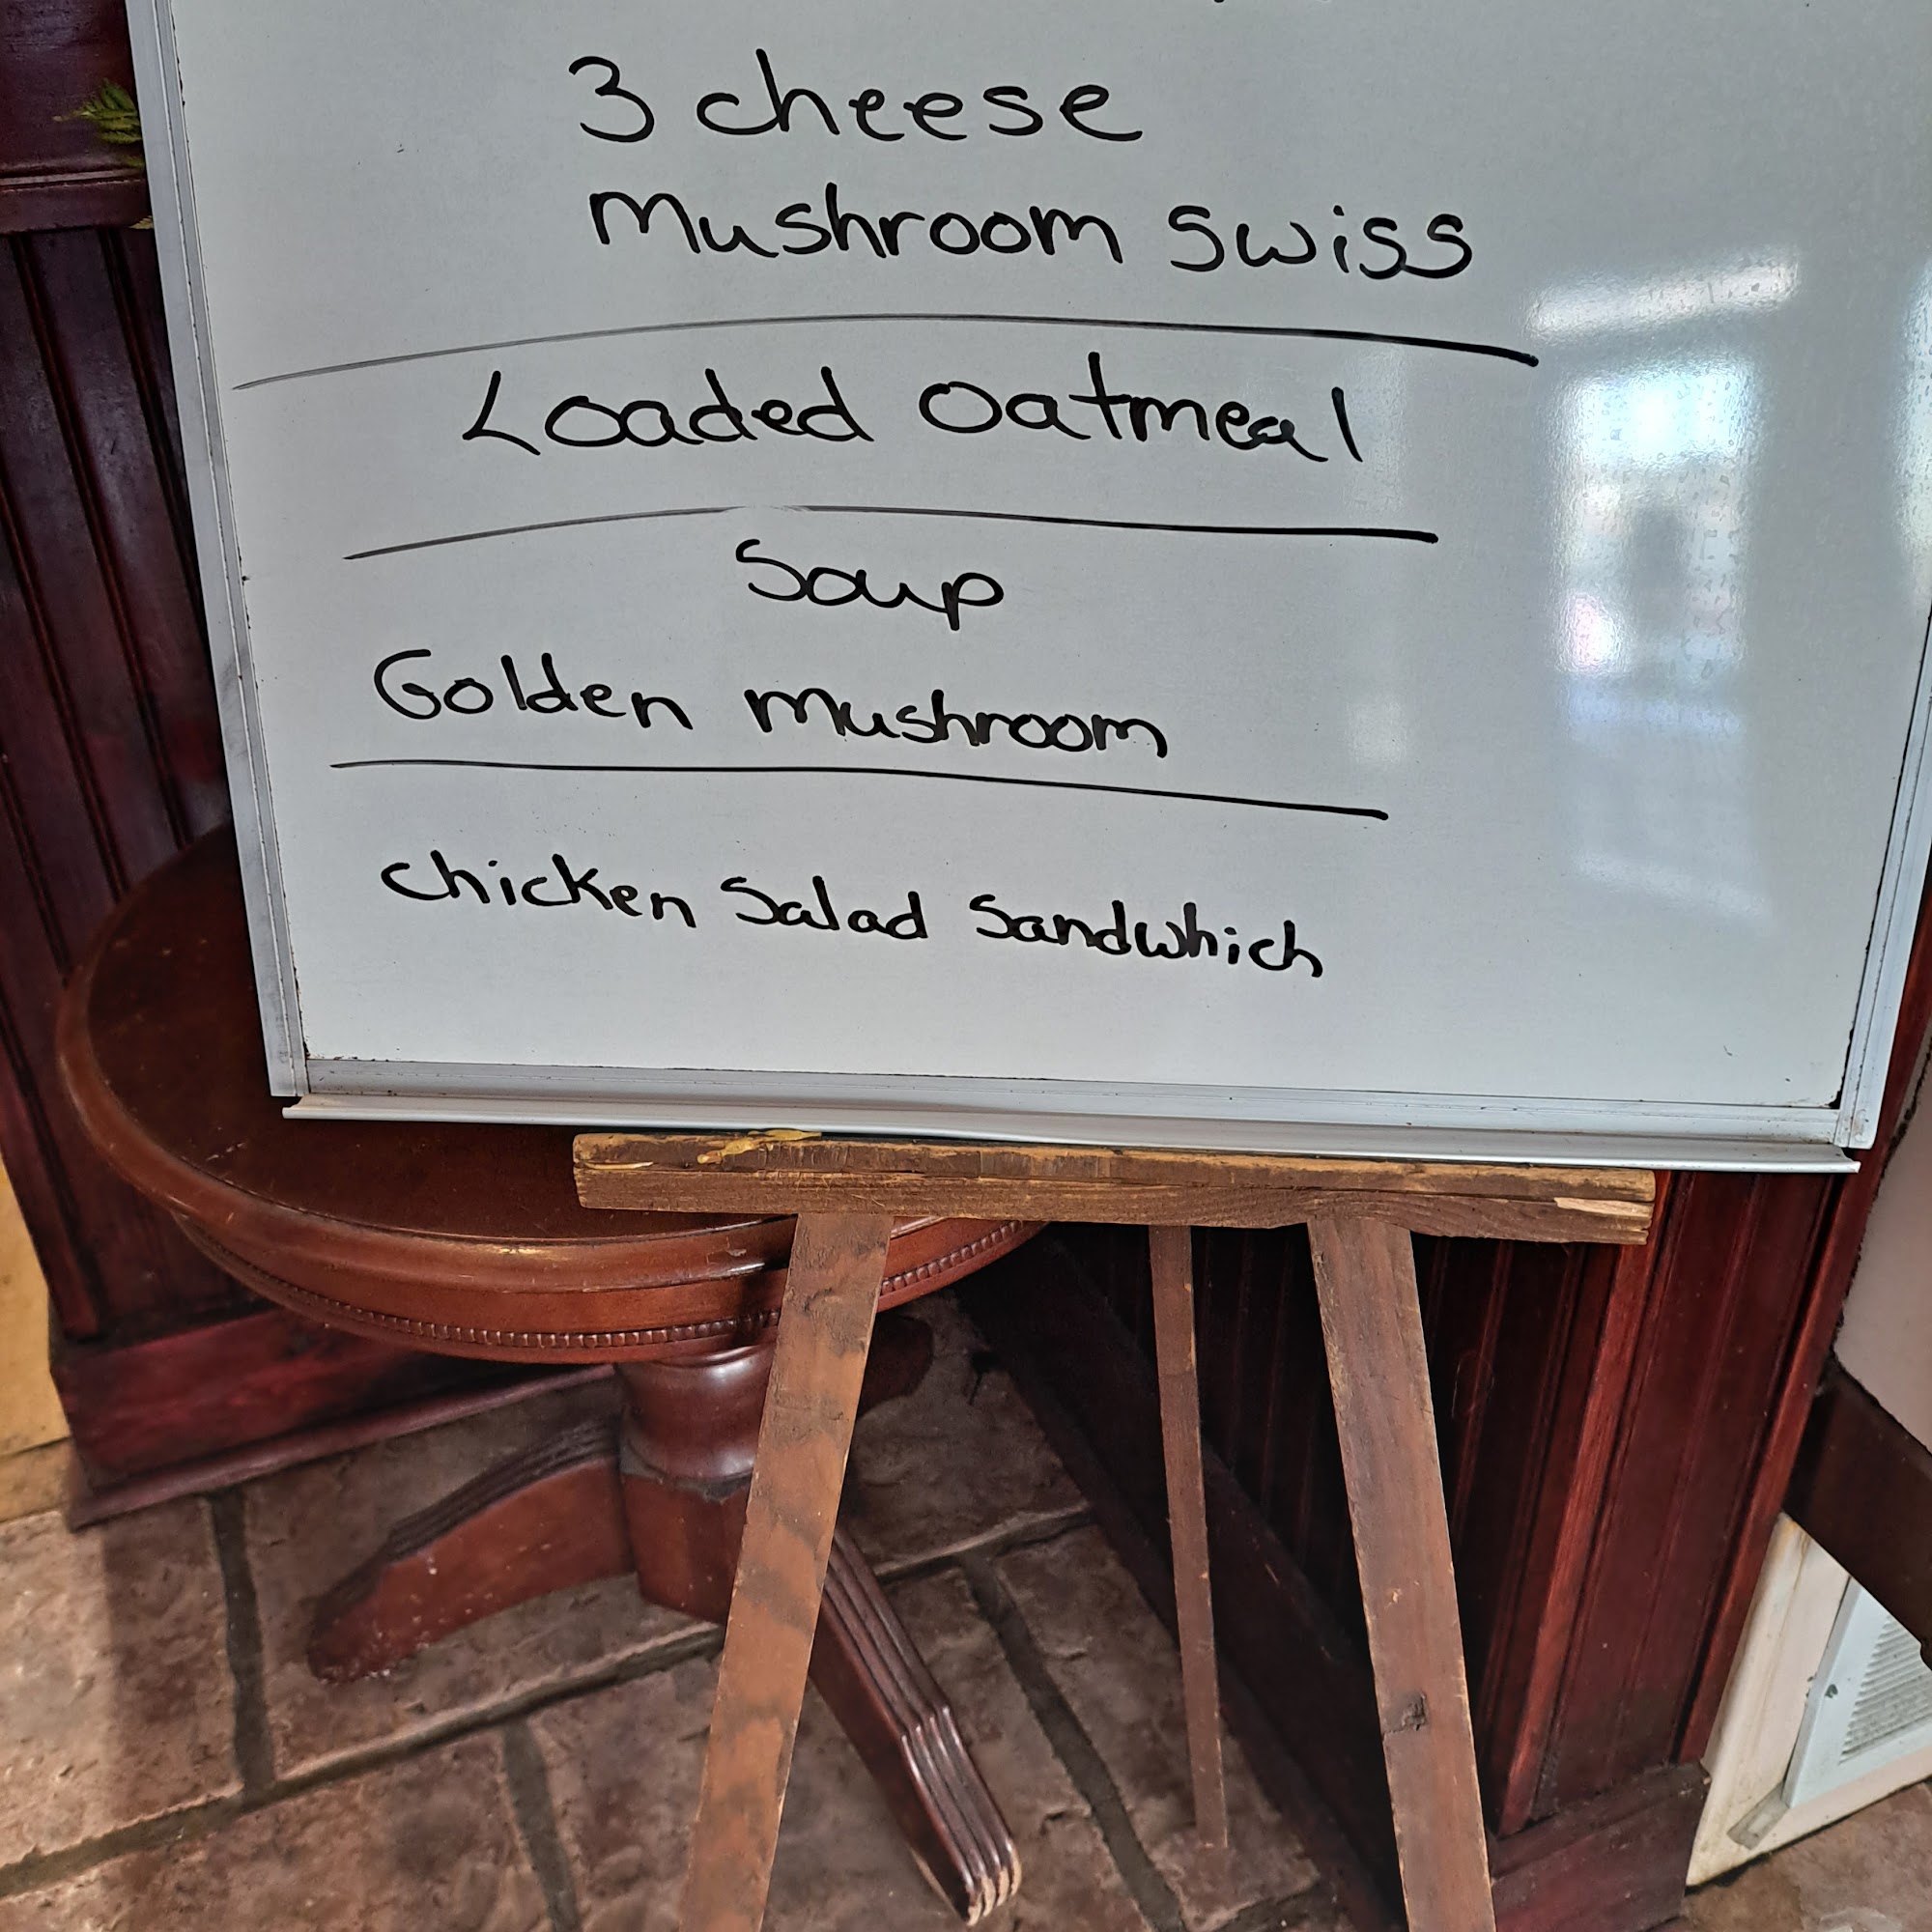 3 cheese
Mushroom Swiss
Loaded Oatmeal
Soup
Golden Mushroom
Chicken Salad Sandwhich